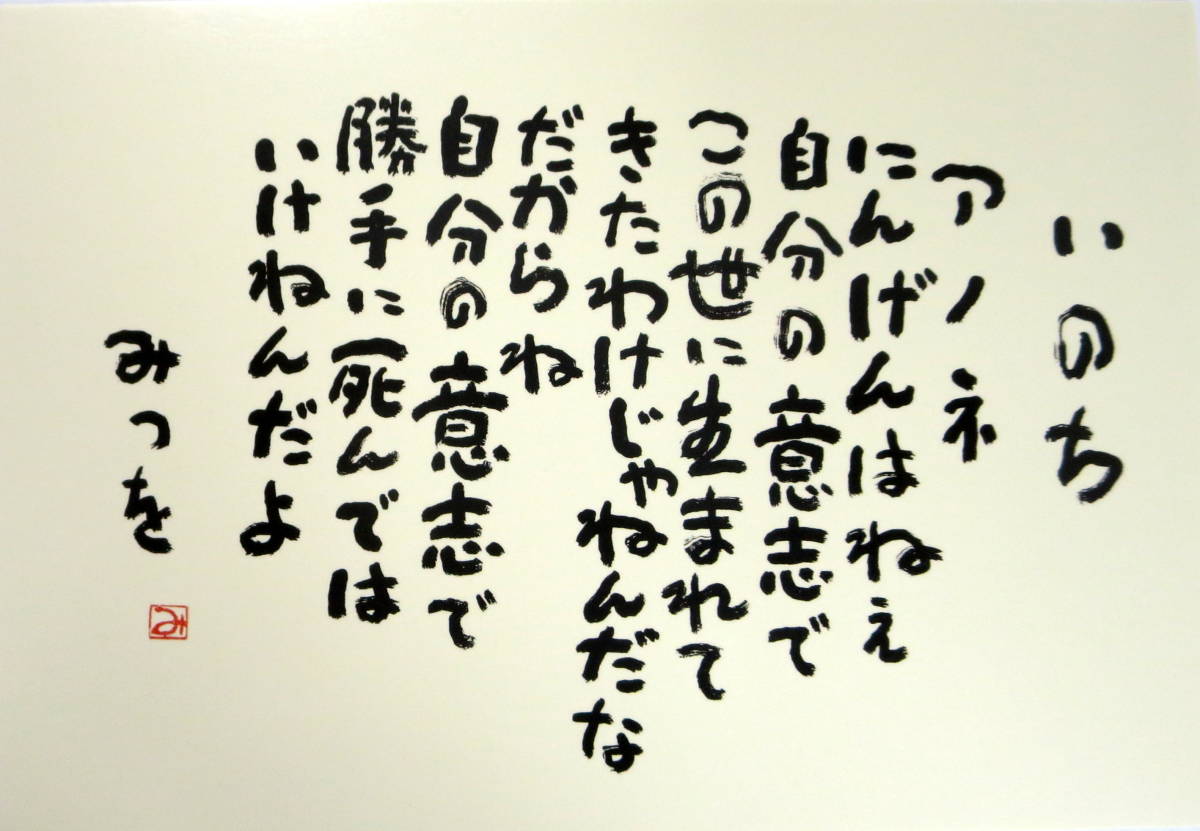 いのち
アノネ
にんげんはねぇ
自分の意志で
この世に生まれて
きたわけじゃねんだな
だからね
自分の意志で
勝手に死んでは
いけねんだよ
みつを
み